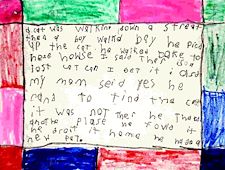 a cat was walkin down a streat
then a boy walkd bay he picd
up the cat. he walked bake to
hees howse I said ther is a
lost cat can I cet it
my mom seid yes he
rand to find the cat
it was not ther he
anothe plase he fowid it
he droit it home he had a
new pet.